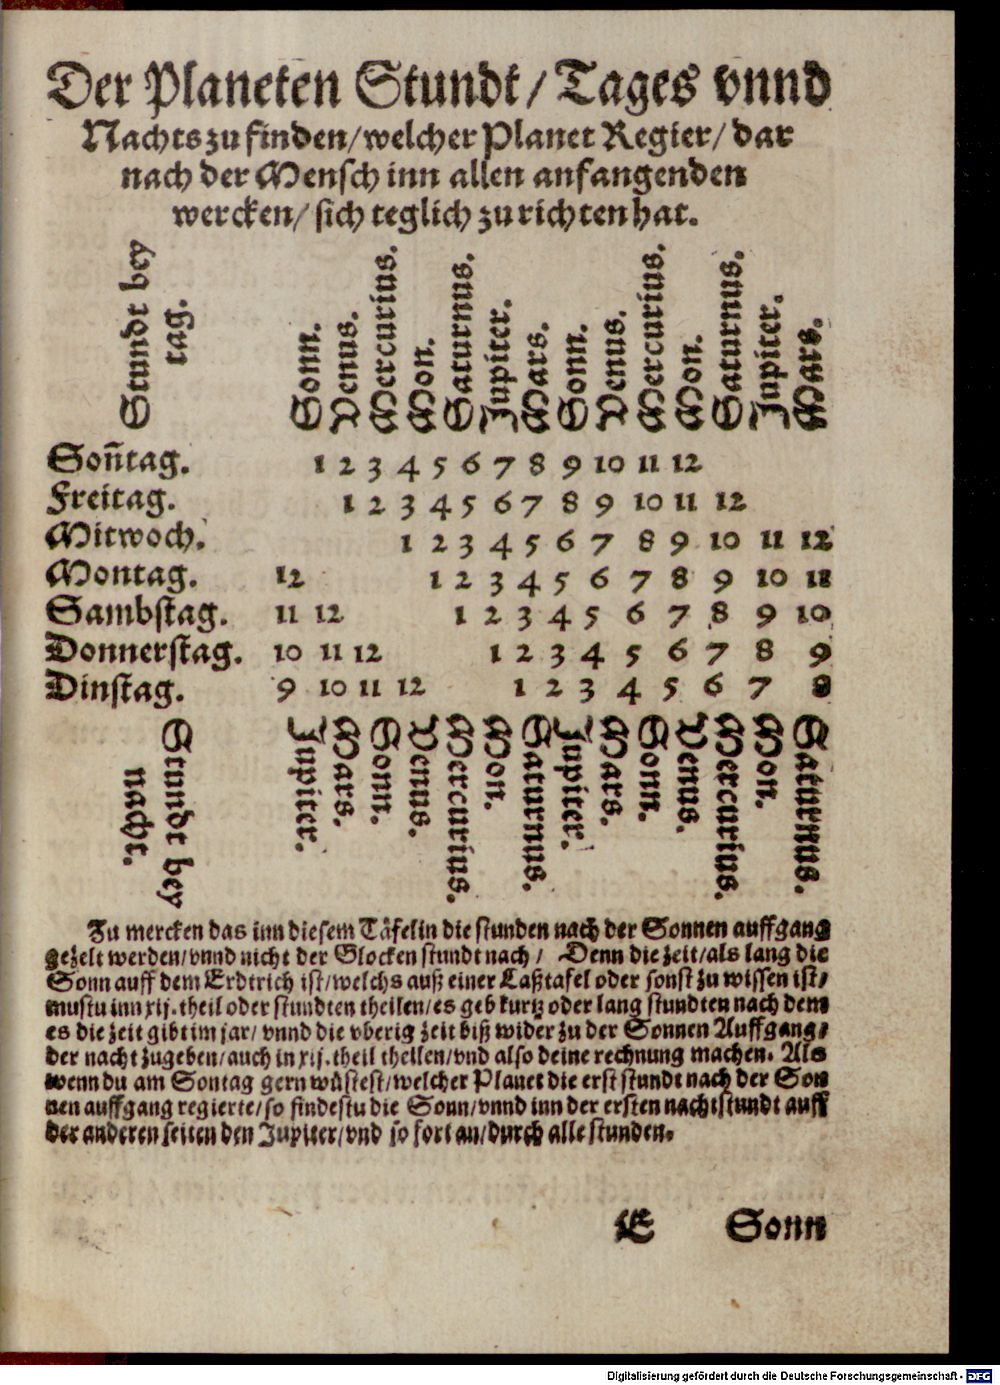 Der Planeten Stundt / Tages vnnd
Nachts zu finden / welcher Planet Regier / dar
nach der Mensch inn allen anfangenden
wercken / sich teglich zu richten hat.
Stundt bey
tag.
Sonn.
Venus.
Mercurius.
Mon.
Saturnus.
Jupiter.
Mars.
Sonn.
Venus.
Mercurius.
Mon.
Saturnus.
Jupiter.
Mars.
Soñtag. 1 2 3 4 5 6 7 8 9 10 11 12
Freitag. 1 2 3 4 5 6 7 8 9 10 11 12
Mitwoch. 1 2 3 4 5 6 7 8 9 10 11 12
Montag. 12 1 2 3 4 5 6 7 8 9 10 11
Sambstag. 11 12 1 2 3 4 5 6 7 8 9 10
Donnerstag. 10 11 12 1 2 3 4 5 6 7 8 9
Dinstag. 9 10 11 12 1 2 3 4 5 6 7 8
Stundt bey
nacht.
Jupiter.
Mars.
Sonn.
Venus.
Mercurius.
Mon.
Saturnus.
Jupiter.
Mars.
Sonn.
Venus.
Mercurius.
Mon.
Saturnus.
Zu mercken das inn diesem Täfelin die stunden nach der Sonnen auffgang
gezelt werden / vnnd nicht der Glocken stundt nach / Denn die zeit / als lang die
Sonn auff dem Erdtrich ist / welchs auß einer Laßtafel oder sonst zu wissen ist /
mustu inn xij. theil oder stundten theilen / es geb kurtz oder lang stundten nach dem
es die zeit gibt im jar / vnnd die vberig zeit biß wider zu der Sonnen Auffgang /
der nacht zugeben / auch in xij. theil theilen / vnd also deine rechnung machen. Als
wenn du am Sontag gern wüstest / welcher Planet die erst stundt nach der Son
nen auffgang regierte / so findestu die Sonn / vnnd inn der ersten nachtstundt auff
der anderen seiten den Jupiter / vnd so fort an / durch alle stunden.
E Sonn
Digitalisierung gefördert durch die Deutsche Forschungsgemeinschaft - DFG